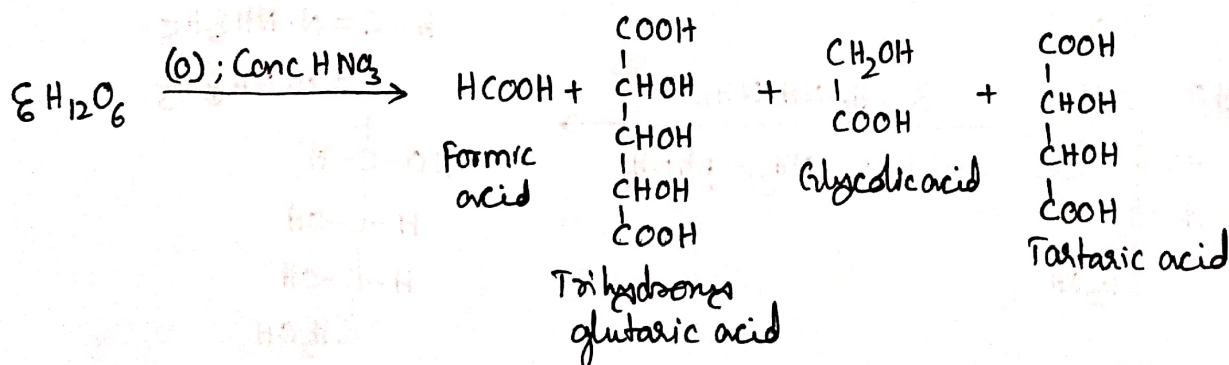 C6H12O6 (O); Conc HNO3 → HCOOH + COOH CHOH CHOH CHOH COOH + CH2OH COOH + COOH CHOH CHOH COOH
Formic acid
Trihydroxy glutaric acid
Glycolic acid
Tartaric acid